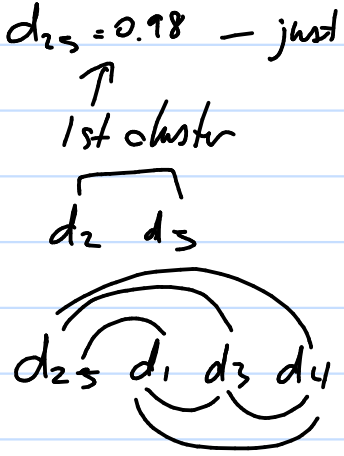 d₂₅ = 0.98 — just
1st cluster
d₂ d₅
d₂₅ d₁ d₃ d₄